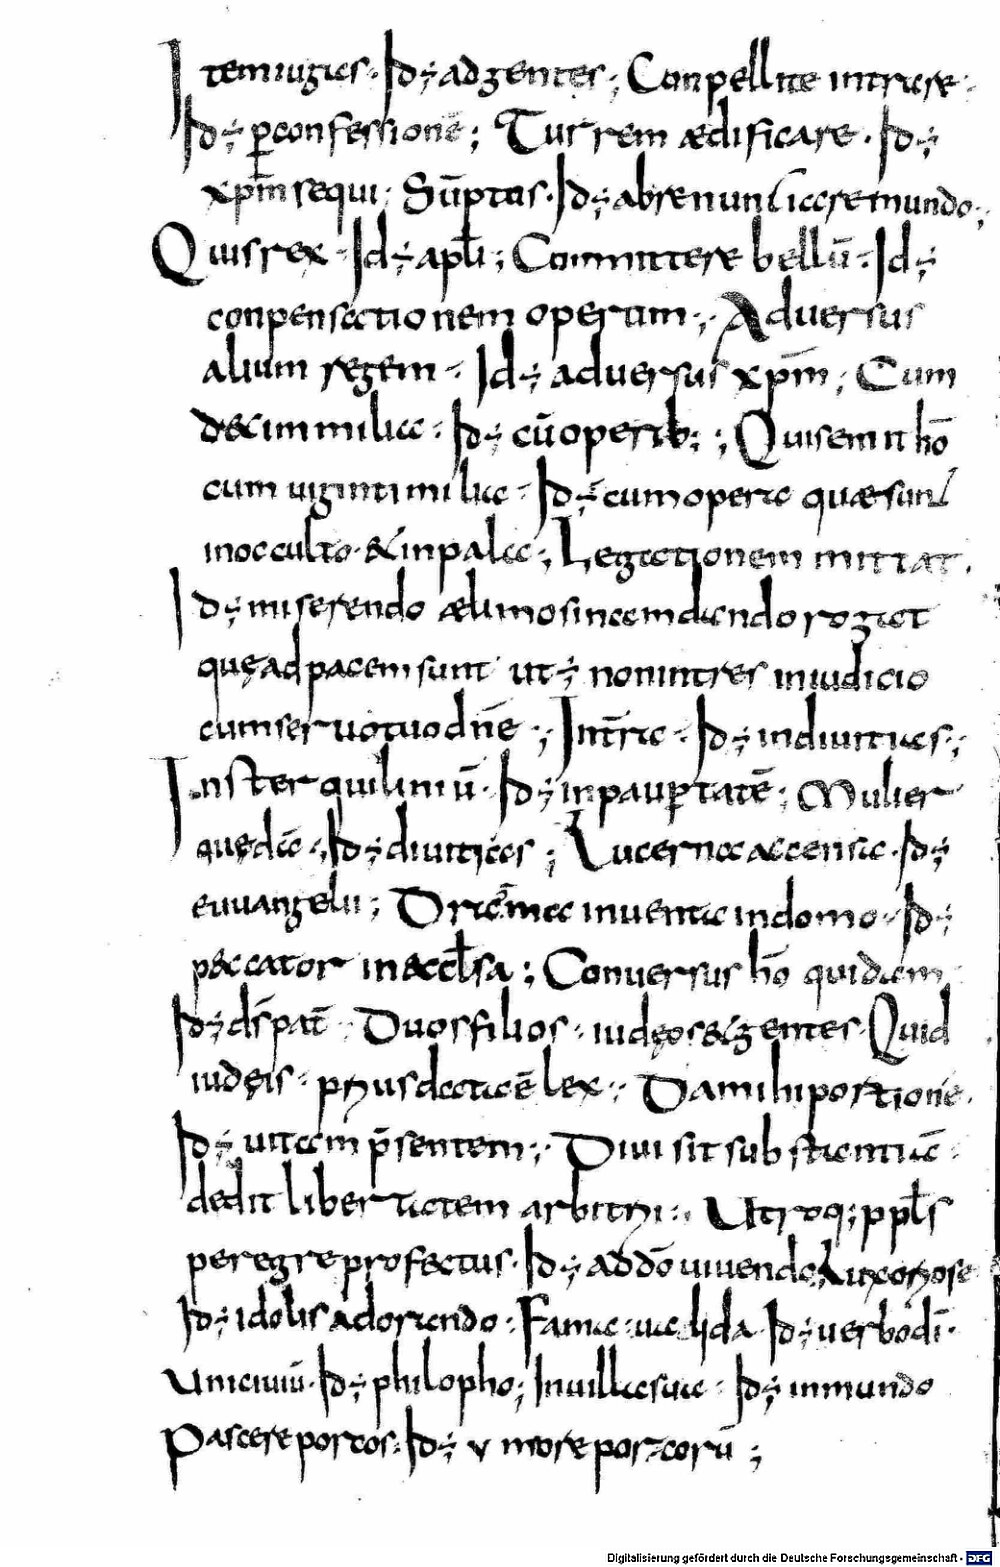 Item iugus · Id ÷ ad gentes ; Conpellite intrare ·
Id ÷ ꝑ confessionē ; Turrem ædificare · Id ÷
xp̄m sequi · Sūptus · Id ÷ abrenuntiare mundo ;
Quis rex · Id ÷ apl̄i ; Committere bellū · Id ÷
conpensationem operum ; Adversus
alium regem · Id ÷ adversus xp̄m ; Cum
decim milia · Id ÷ cū operib; ; Qui semit hō
cum viginti milia · Id ÷ cum opera quæ sunt
in occulto · & in pala ; Legationem mittat ·
Id ÷ miserendo ælimosina mdando rogat
quę ad pacem sunt ut ÷ non intres in iudicio
cum servo tuo dn̄e ; Int̄ra · Id ÷ in divitias ;
In sterquiliniū · Id ÷ in paupertatē ; Mulier
quędā · Id ÷ divitias ; Lucerna accensa · Id ÷
euuangelii ; inventa in domo · Id ÷
peccator in eccl̄sa ; Conversus hō quidam
Id ÷ dš pat̄ · Duos filios · iudęos & gentes · Quid
iudęis · prius data ē lex ; Da mihi portionē ·
Id ÷ vitam p̄sentem ; Divisit substantiā ·
dedit libertatem arbitrii ; Utroq; ppl̄s
peregre profectus · Id ÷ ad dō vivendo Luxoriose
Id ÷ idolis adorando · Fames valida · Id ÷ verbo dī ·
Uni civiū · Id ÷ philopho ; In villa sua · Id ÷ in mundo
Pascere porcos · Id ÷ v more porcorū ;
Digitalisierung gefördert durch die Deutsche Forschungsgemeinschaft - DFG